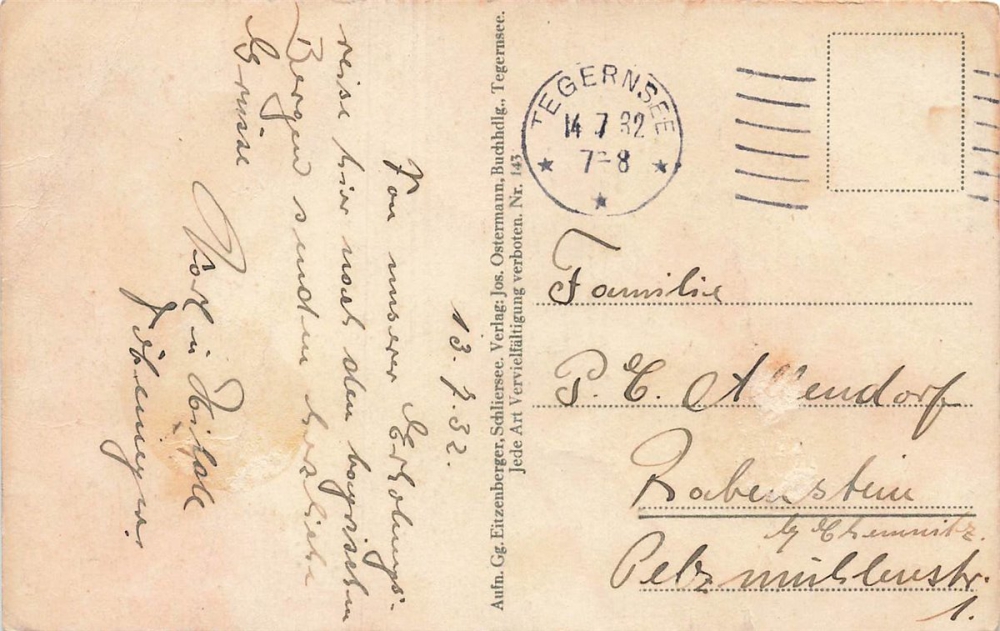 13.7.32.
Von unserer Erholungs-
reise hier nach den bayrischen
Bergen senden herzliche
Grüsse
Aufn. Gg. Eitzenberger, Schliersee. Verlag: Jos. Ostermann, Buchhdlg., Tegernsee.
Jede Art Vervielfältigung verboten. Nr. 143
TEGERNSEE
14 7 32
7-8
Familie
P. E. Allendorf
Rabenstein
b/ Chemnitz.
Pelzmühlenstr.
1.